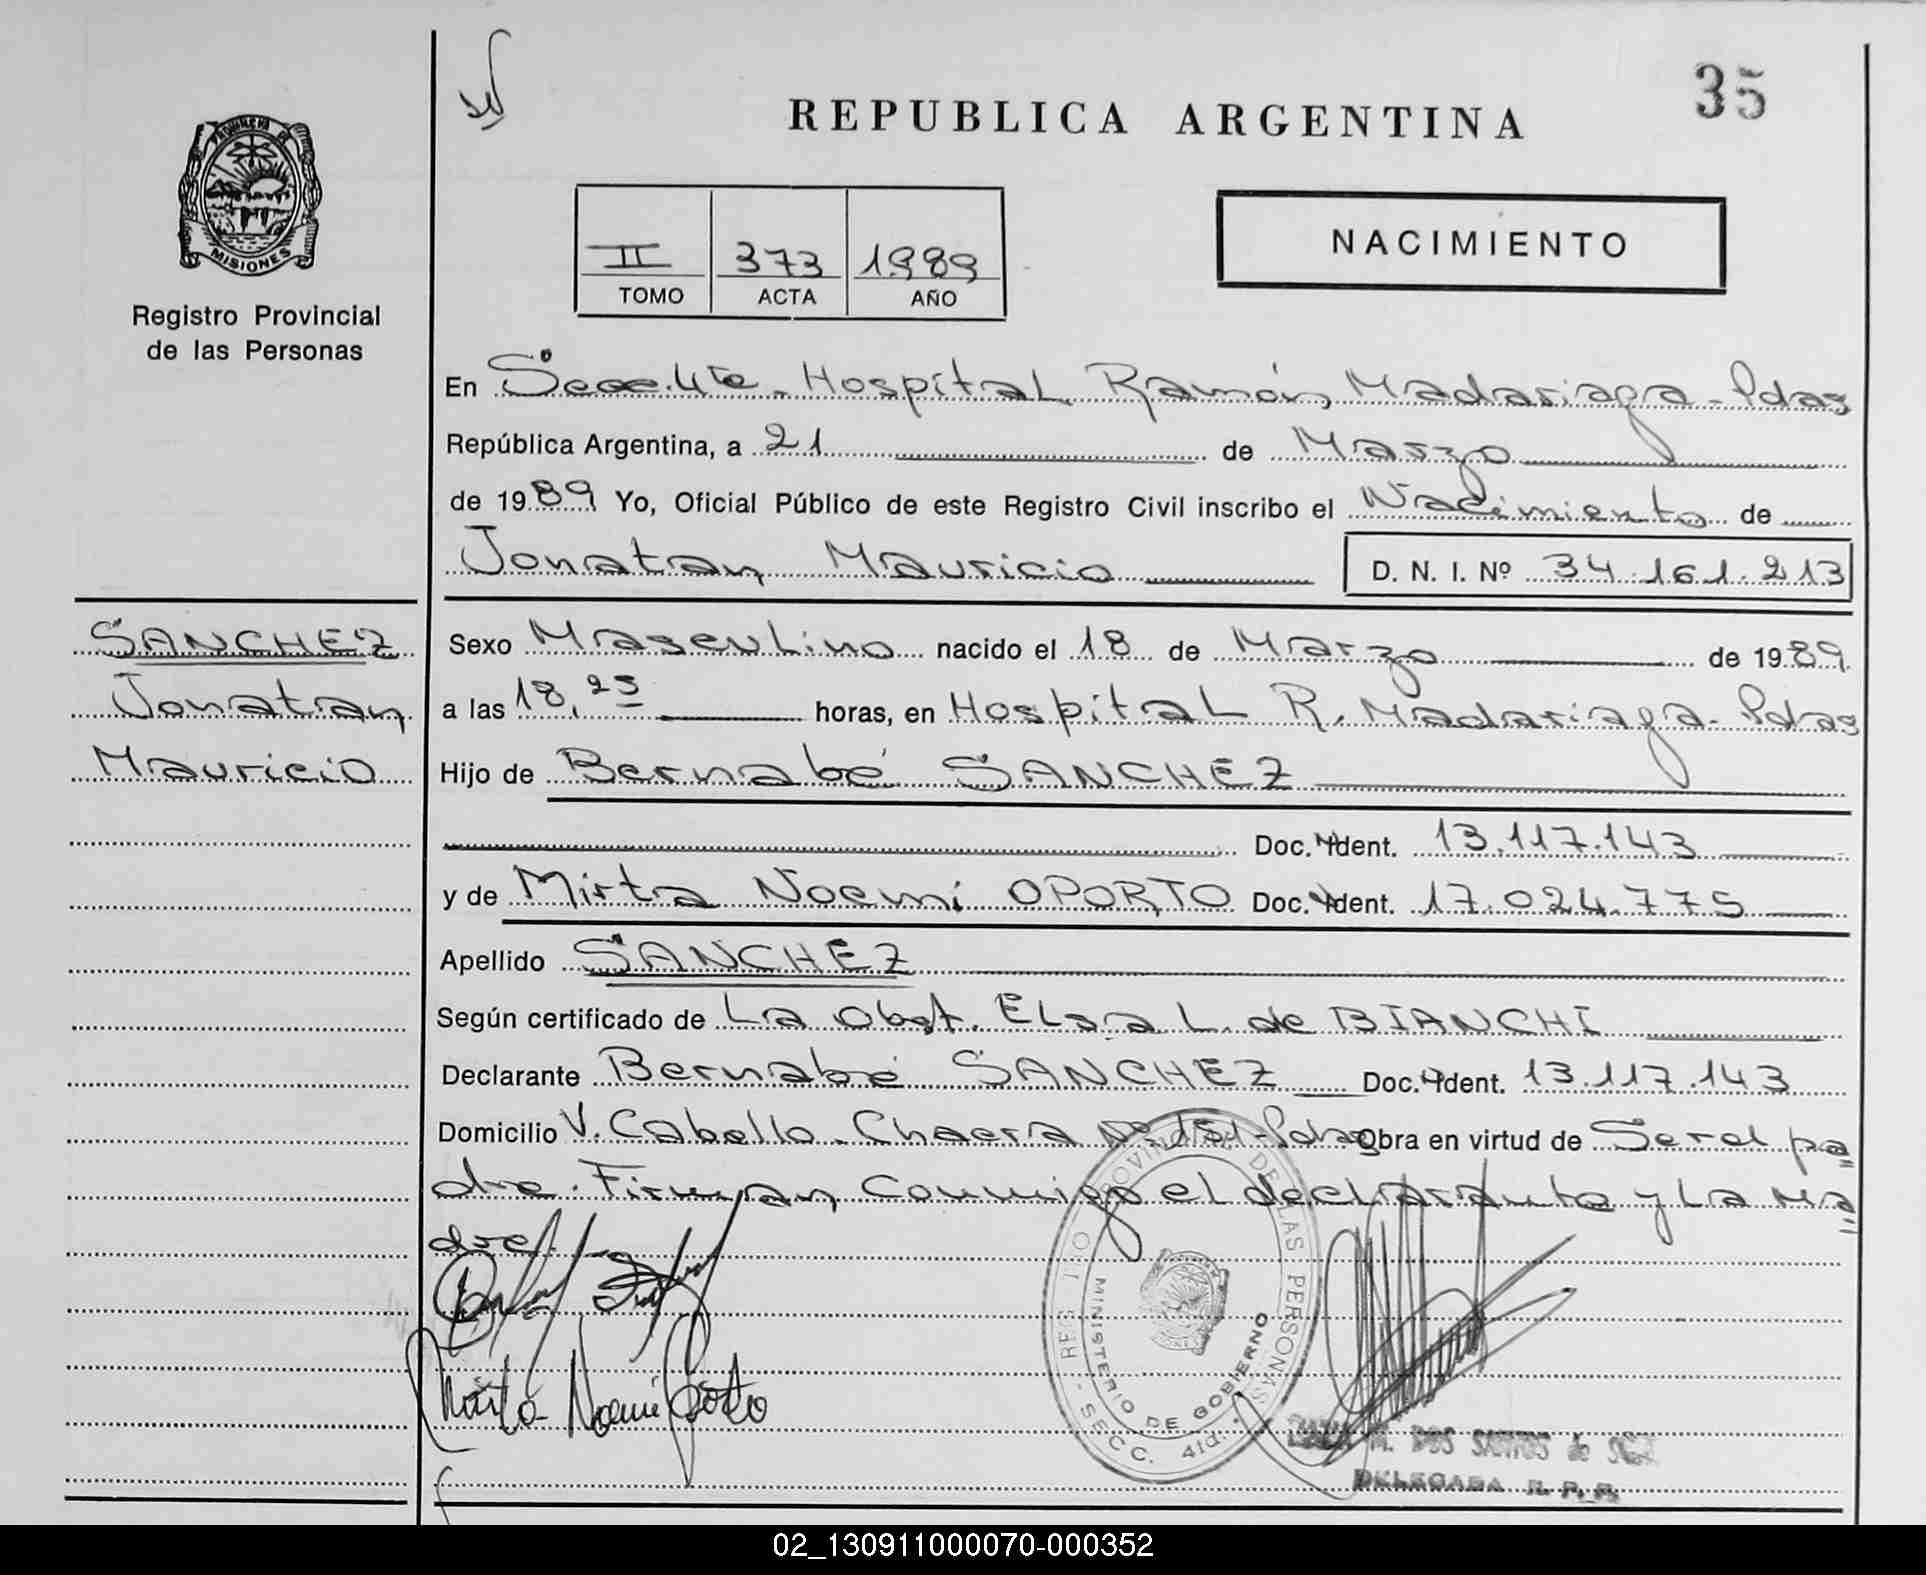 35
REPUBLICA ARGENTINA
PROVINCIA DE
MISIONES
Registro Provincial
de las Personas
NACIMIENTO
II 373 1989
TOMO ACTA AÑO
En Secc. 4ta. Hospital Ramón Madariaga - Pdas
República Argentina, a 21 de Marzo
de 1989 Yo, Oficial Público de este Registro Civil inscribo el Nacimiento de
Jonatan Mauricio D. N. I. Nº 34.161.213
SANCHEZ
Jonatan
Mauricio
Sexo Masculino nacido el 18 de Marzo de 1989
a las 18,25 horas, en Hospital R. Madariaga - Pdas
Hijo de Bernabé SANCHEZ
Doc. Ident. 13.117.143
y de Mirta Noemí OPORTO Doc. Ident. 17.024.775
Apellido SANCHEZ
Según certificado de La Obst. Elsa L. de BIANCHI
Declarante Bernabé SANCHEZ Doc. Ident. 13.117.143
Domicilio V. Cabello - Chacra Nº 151 - Pdas Obra en virtud de Ser el pa
dre. Firman Conmigo el declarante y La ma
dre.
Mirta Noemi Oporto
REGISTRO PROVINCIAL DE LAS PERSONAS
MINISTERIO DE GOBIERNO
SECC. 4ta.
M. DOS SANTOS de
DELEGADA R. P. P.
02_130911000070-000352